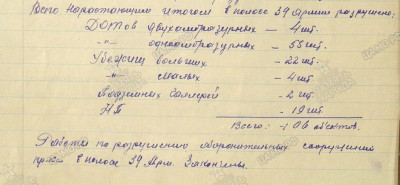 Всего нарастающим итогом в полосе 39 Армии разрушено:
ДОТов двухамбразурных — 4 шт.
-"- одноамбразурных — 55 шт.
Убежищ больших — 22 шт.
-"- малых — 4 шт.
Подземных галлерей — 2 шт.
НП — 19 шт.
Всего: 106 объектов.
Работы по разрушению оборонительных сооружений
пр-ка в полосе 39 Арм. Закончены.